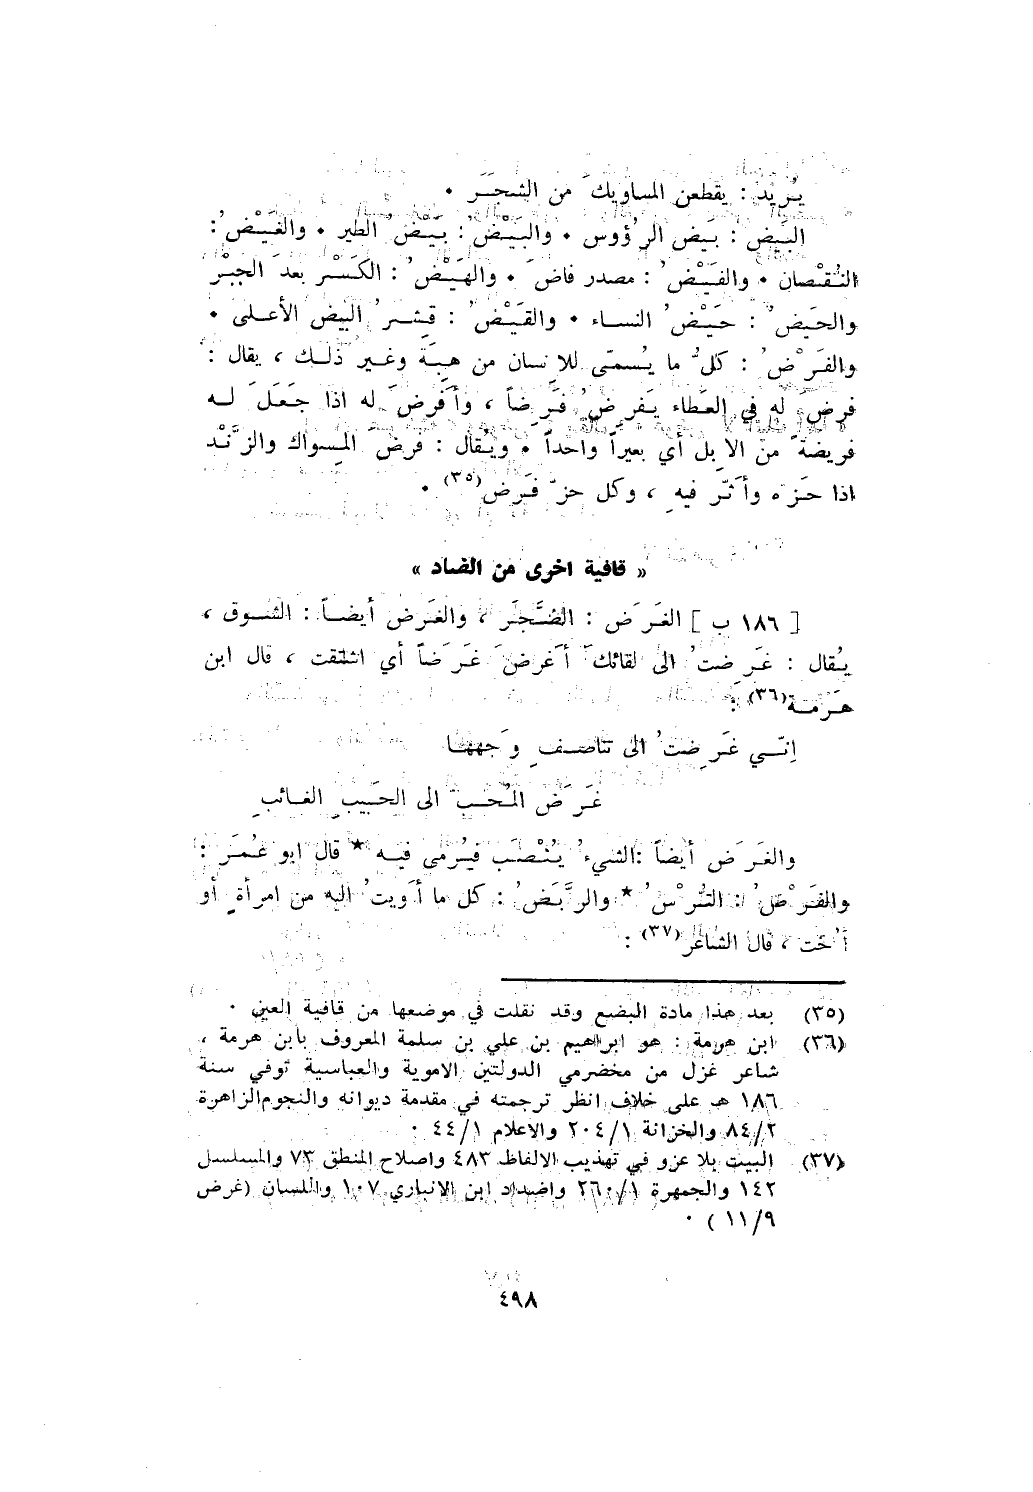 يُريد : يقطعن المساويكَ من الشجَر .
البَيض : بَيض الرؤوس . والبَيْض : بَيَض الطير . والغَيْضُ :
النُقْصان . والفَيْضُ : مصدر فاضَ . والهَيْضُ : الكَسْر بعدَ الجبْر
والحَيضُ : حَيْضُ النساء . والقَيْضُ : قِشرُ البَيض الأعلى .
والفَرْضُ : كلُّ ما يُسمّى للإنسان من هِبَة وغير ذلك ، يقال :
فرضَ له في العَطاء يَفرِضُ فَرضاً ، وأَفرضَ له اذا جَعَلَ له
فريضةً من الإبل أي بعيراً واحداً . ويُقال : فرضَ المِسواك والزَّنْد
اذا حَزه وأَثّر فيهِ ، وكل حزّ فَرض(٣٥) .
« قافية اخرى من الضاد »
[ ١٨٦ ب ] الغَرَض : الضَّجَر ، والغَرَض أيضاً : الشوق ،
يُقال : غَرِضتُ الى لقائكَ أَغرضَ غَرَضاً أي اشتقت ، قال ابن
هَرْمة(٣٦) :
إنّي غَرِضتُ الى تناصفِ وَجهها
غَرَضَ المُحبِّ الى الحَبيبِ الغائبِ
والغَرَض أيضاً : الشيءُ يُنْصَب فيُرمى فيه * قال ابو عُمَر :
والفَرْضُ : التُرْسُ * والرَّبَضُ : كل ما أَويتُ اليه من امرأةٍ أو
أُخت ، قال الشاعر(٣٧) :
(٣٥) بعد هذا مادة البضع وقد نقلت في موضعها من قافية العين .
(٣٦) ابن هرمة : هو ابراهيم بن علي بن سلمة المعروف بابن هرمة ،
شاعر غزل من مخضرمي الدولتين الاموية والعباسية توفي سنة
١٨٦ هـ على خلاف انظر ترجمته في مقدمة ديوانه والنجوم الزاهرة
٨٤/٢ والخزانة ٢٠٤/١ والاعلام ٤٤/١ .
(٣٧) البيت بلا عزو في تهذيب الالفاظ ٤٨٣ واصلاح المنطق ٧٣ والمسلسل
١٤٢ والجمهرة ٢٦٠/١ واضداد ابن الانباري ١٠٧ واللسان (غرض
١١/٩ ) .
٤٩٨